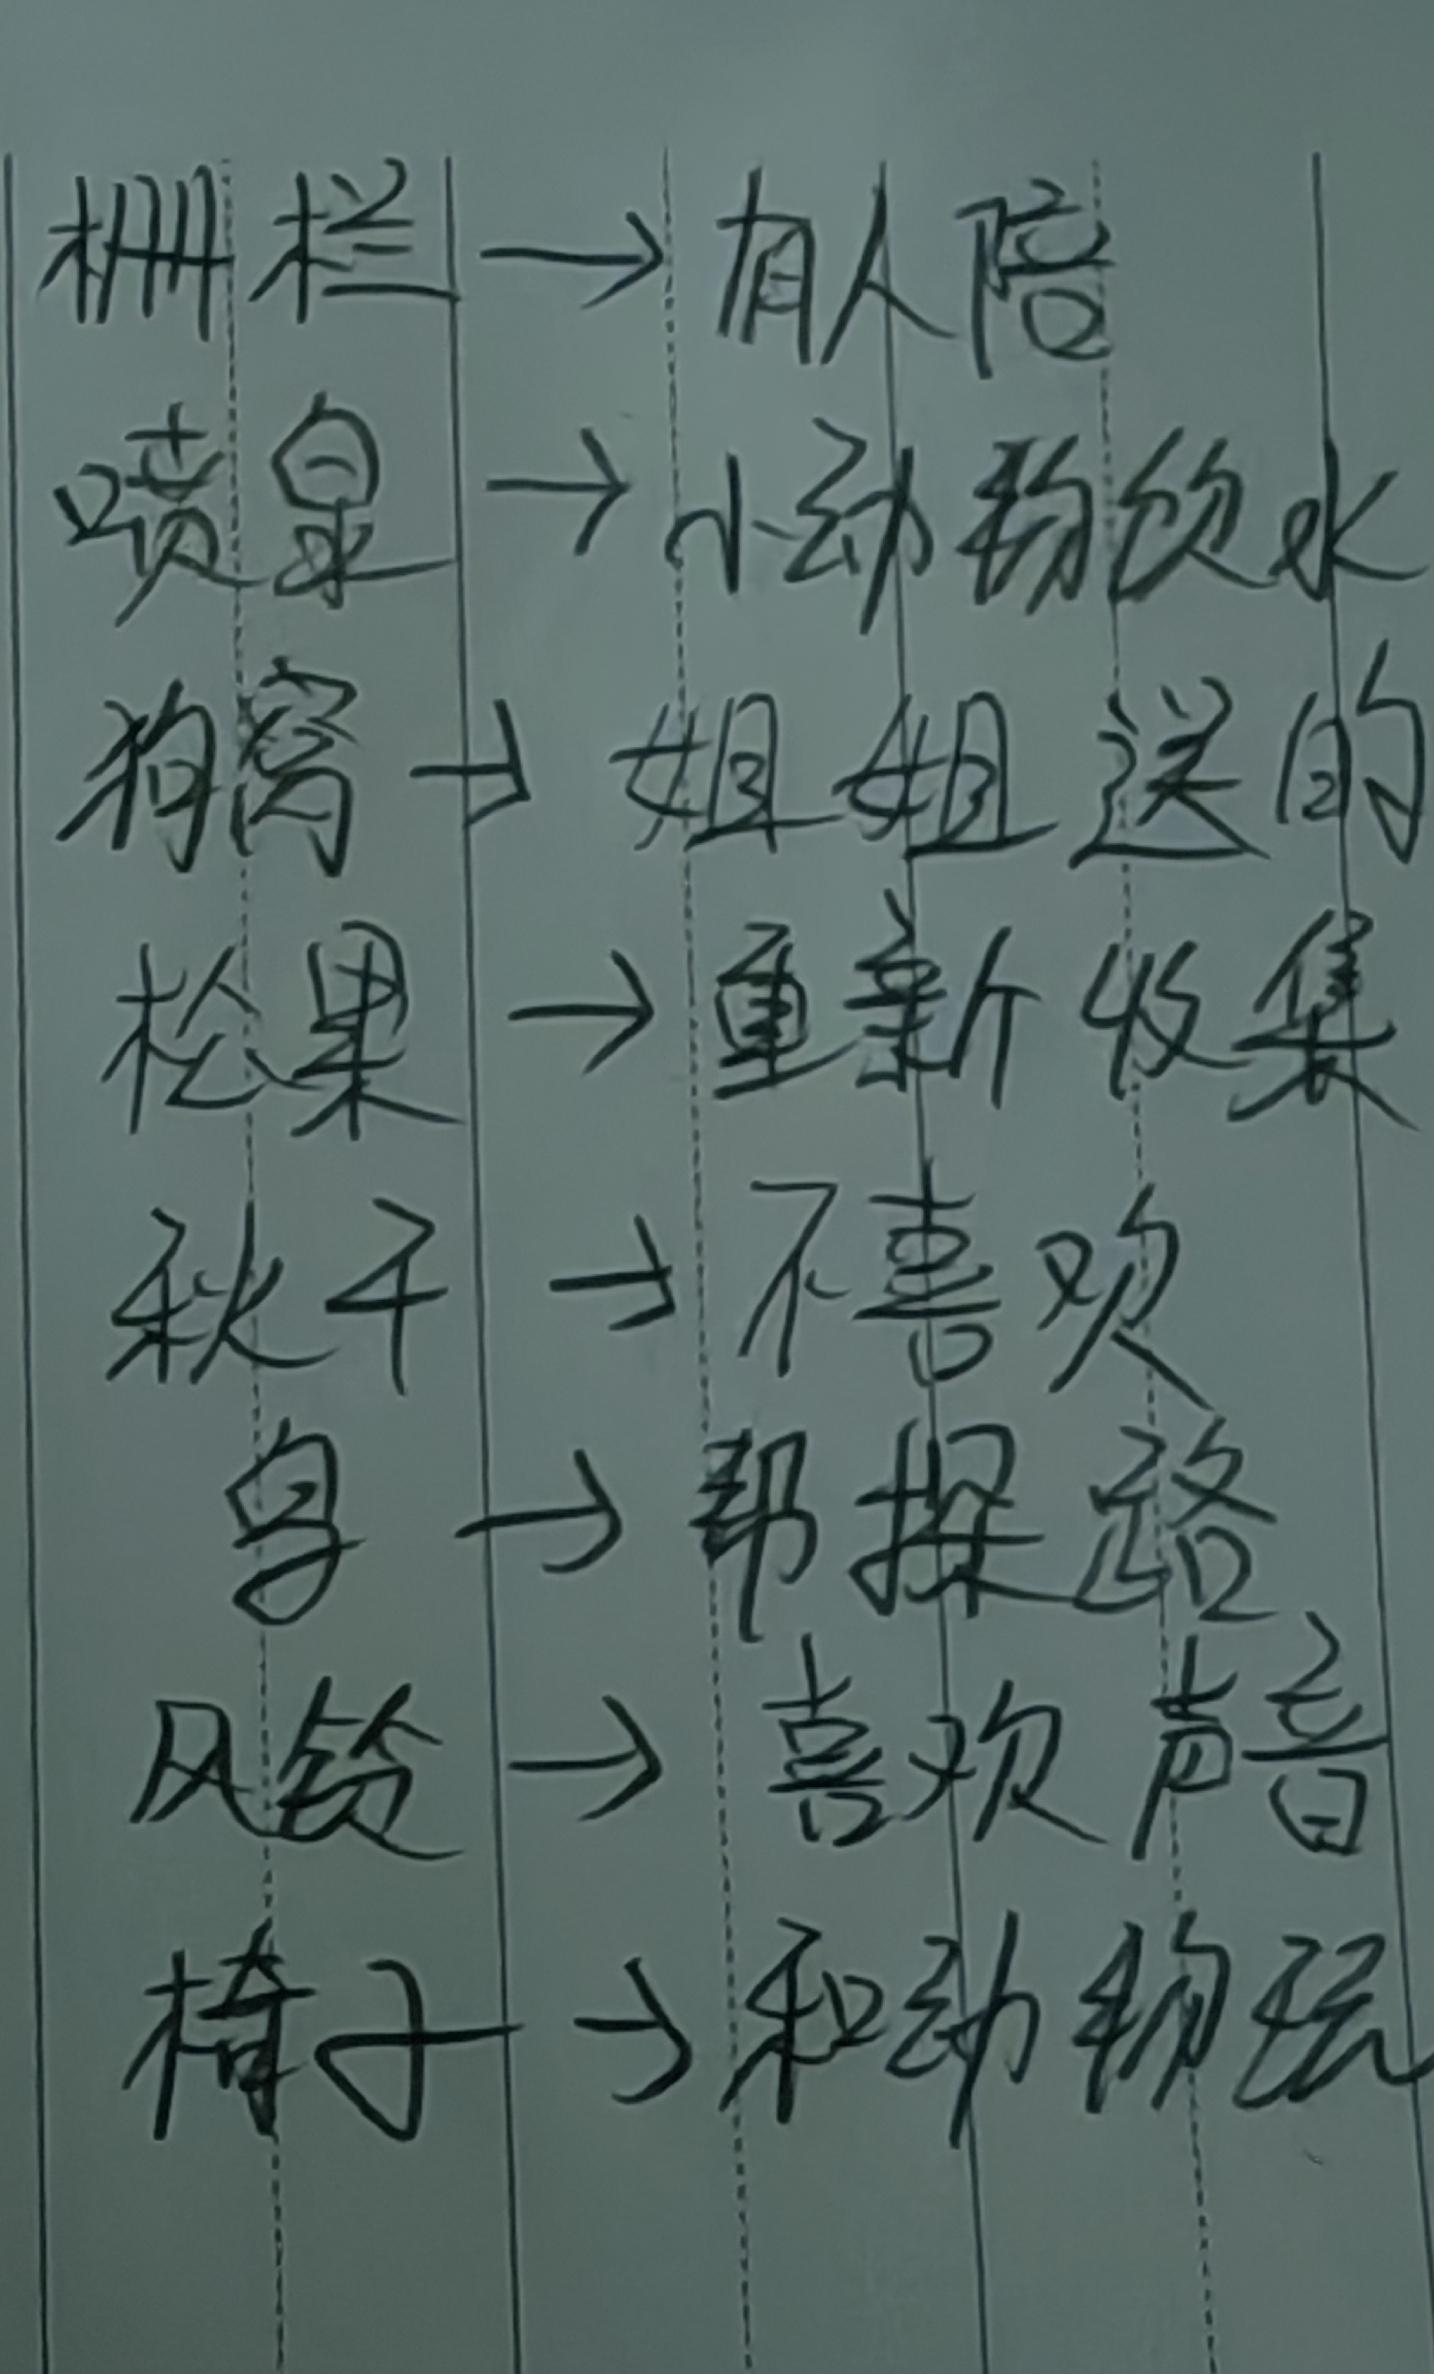 栅栏→有人陪
喷泉→小动物饮水
狗窝→姐姐送的
松果→重新收集
秋千→不喜欢
鸟→帮探路
风铃→喜欢声音
椅子→和动物玩